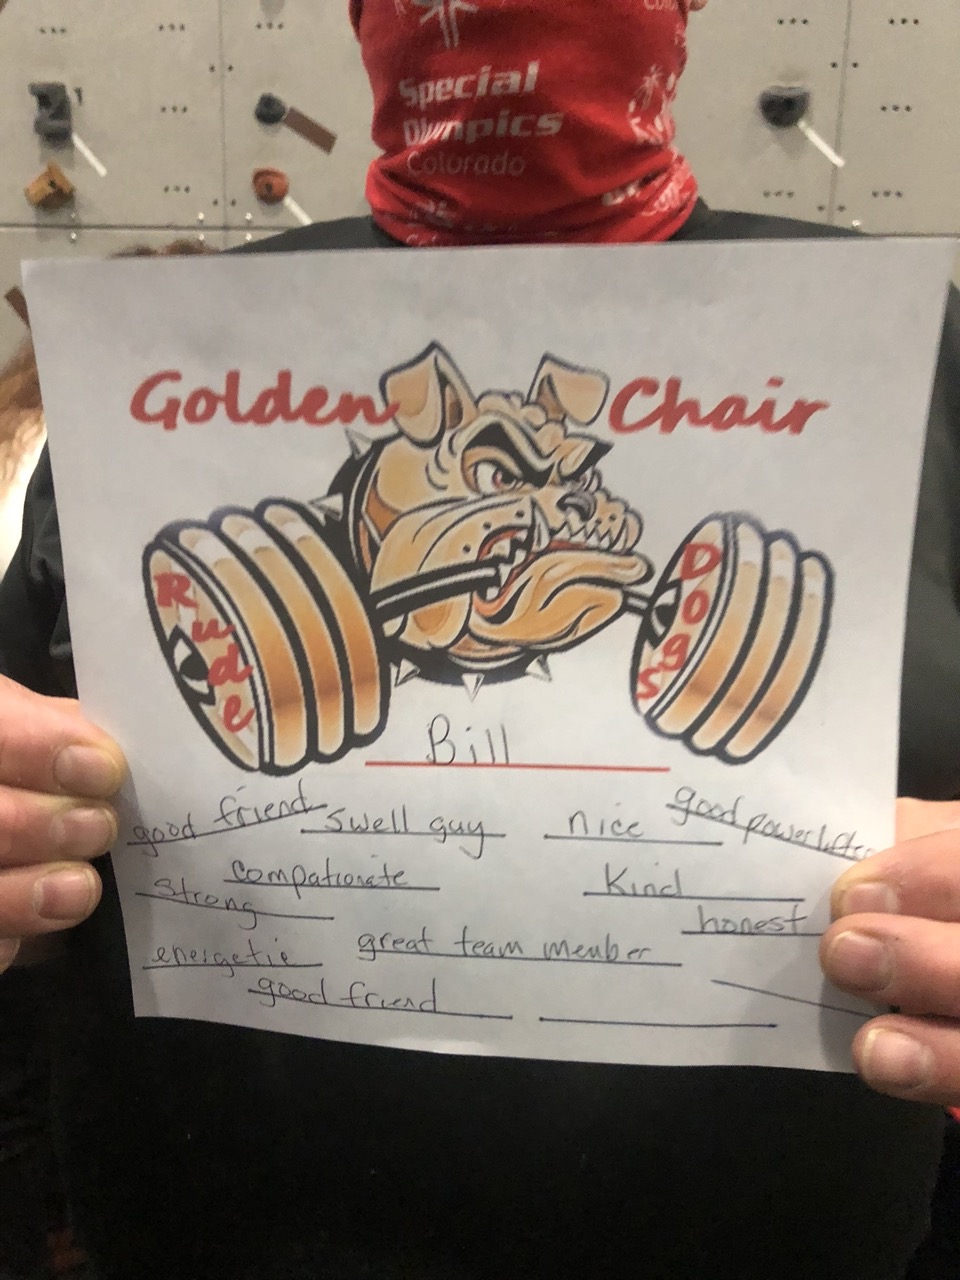 Special
Olympics
Colorado
Golden Chair
Rude
Dogs
Bill
good friend
swell guy
nice
good powerlifter
compationate
Kind
strong
honest
energetic
great team member
good friend